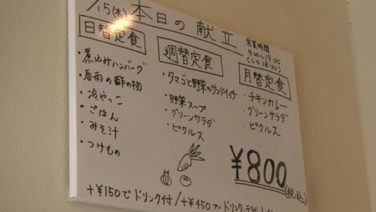 1/15(木) 本日の献立
営業時間
9:00〜19:00
(LO 18:30)
日替定食
・煮込みハンバーグ
・春雨の酢の物
・冷やっこ
・ごはん
・みそ汁
・つけもの
週替定食
・タマゴと野菜のサンドイッチ
・野菜スープ
・グリーンサラダ
・ピクルス
月替定食
・チキンカレー
・グリーンサラダ
・ピクルス
¥800
(税込)
+¥150でドリンク付/+¥450でドリンク